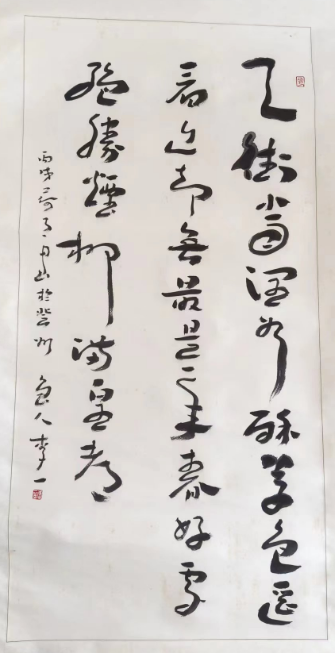 天街小雨润如酥草色遥
看近却無最是一年春好處
绝勝煙柳满皇都
丙戌 月 於 州 人李一